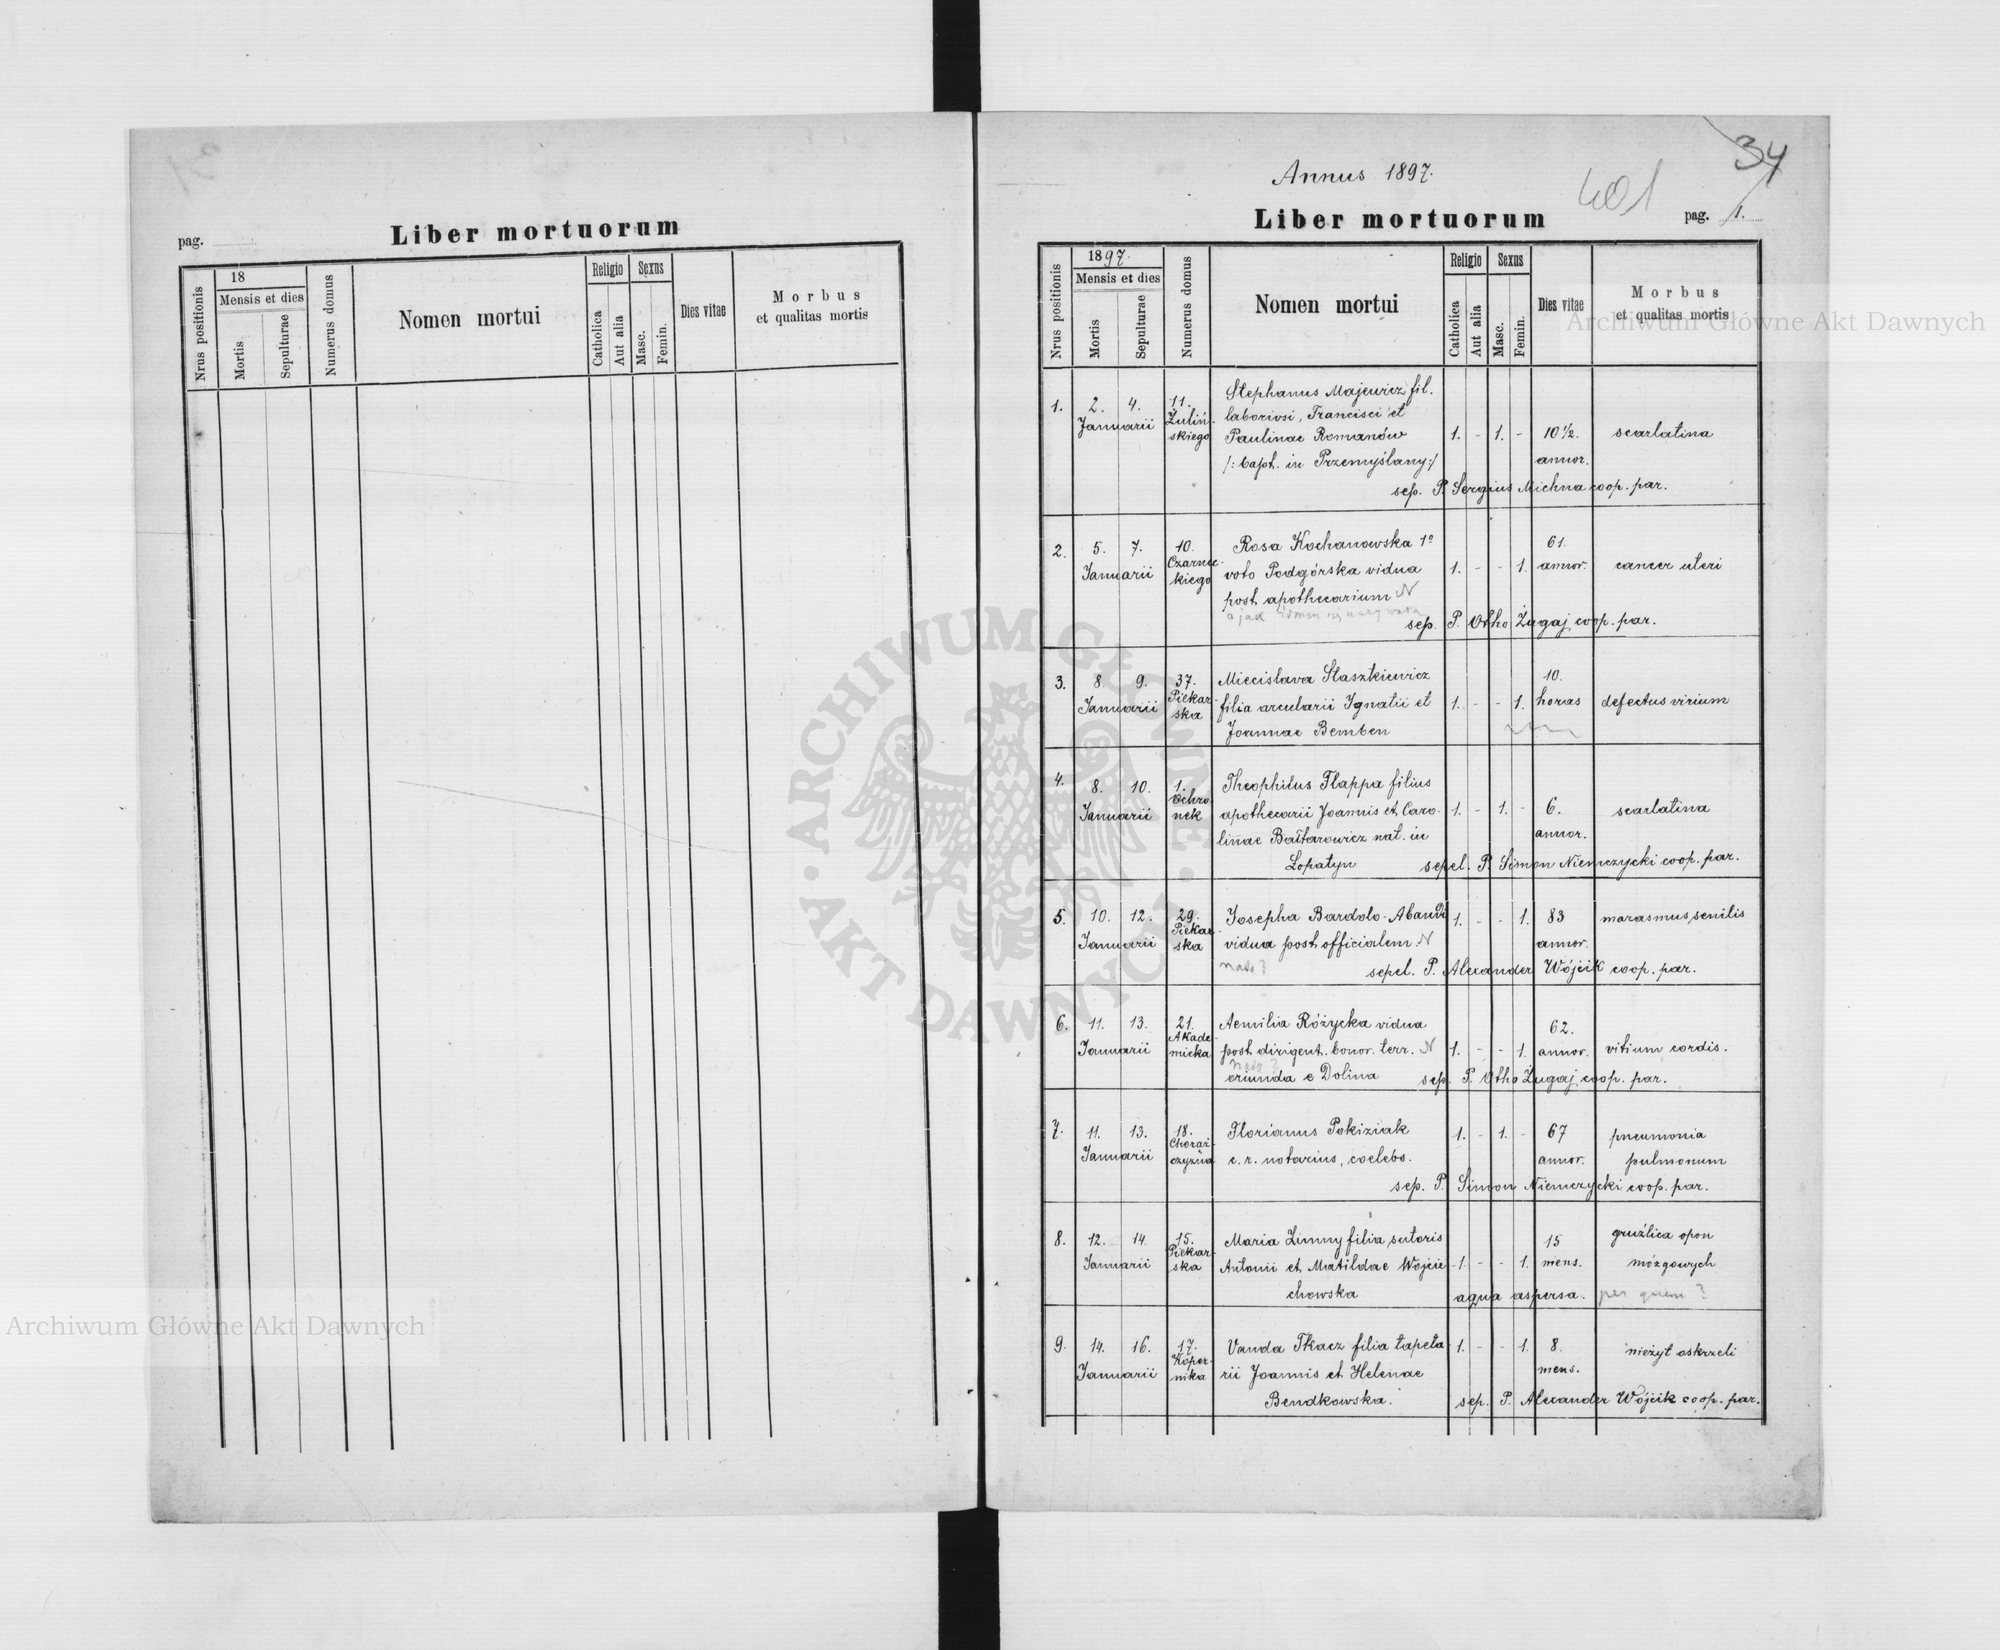 pag.
Liber mortuorum
Nrus positionis
18
Mensis et dies
Mortis
Sepulturae
Numerus domus
Nomen mortui
Religio
Catholica
Aut alia
Sexus
Masc.
Femin.
Dies vitae
Morbus
et qualitas mortis
Annus 1897.
34
401
Liber mortuorum
pag. 1.
Nrus positionis
1897.
Mensis et dies
Mortis
Sepulturae
Numerus domus
Nomen mortui
Religio
Catholica
Aut alia
Sexus
Masc.
Femin.
Dies vitae
Morbus
et qualitas mortis
1. 2. 4. 11. Stephanus Majewicz fil.
Januarii Żuliń- laboriosi, Francisci et
skiego Paulinae Romanów 1. - 1. - 10½. scarlatina
/: bapt. in Przemyślany :/ annor.
sep. P. Sergius Michna coop. par.
2. 5. 7. 10. Rosa Kochanowska 1º 61.
Januarii Czarnec- voto Podgórska vidua 1. - - 1. annor. cancer uteri
kiego post apothecarium N
sep. P. Otho Żugaj coop. par.
3. 8. 9. 37. Miecislava Staszkiewicz 10.
Januarii Piekar- filia arcularii Ignatii et 1. - - 1. horas defectus virium
ska Joannae Bemben
4. 8. 10. 1. Theophilus Flappa filius
Januarii Ochro- apothecarii Joannis et Caro- 1. - 1. - 6. scarlatina
nek linae Bałtarowicz nat. in annor.
Łopatyn sepel. P. Simon Niemczycki coop. par.
5. 10. 12. 29. Josepha Bardolo-Abaudi 1. - - 1. 83 marasmus senilis
Januarii Piekar- vidua post officialem. N annor.
ska
sepel. P. Alexander Wójcik coop. par.
6. 11. 13. 21. Aemilia Różycka vidua 62.
Januarii Akade- post dirigent. bonor. terr. N 1. - - 1. annor. vitium cordis.
micka oriunda e Dolina sep. P. Otho Żugaj coop. par.
7. 11. 13. 18. Florianus Pokiziak 1. - 1. - 67 pneumonia
Januarii Chorąż- c. r. notarius, coelebs. annor. pulmonum
czyzna
sep. P. Simon Niemczycki coop. par.
8. 12. 14. 15. Maria Zimny filia sutoris 15 gruźlica opon
Januarii Piekar- Antonii et Matildae Wojcie- 1. - - 1. mens. mózgowych
ska chowska aqua aspersa. per quem?
9. 14. 16. 17. Vanda Tkacz filia tapeta- 1. - - 1. 8. nieżyt oskrzeli
Januarii Koper- rii Joannis et Helenae mens.
nika Bendkowska. sep. P. Alexander Wójcik coop. par.
ARCHIWUM GŁÓWNE AKT DAWNYCH
Archiwum Główne Akt Dawnych
Archiwum Główne Akt Dawnych